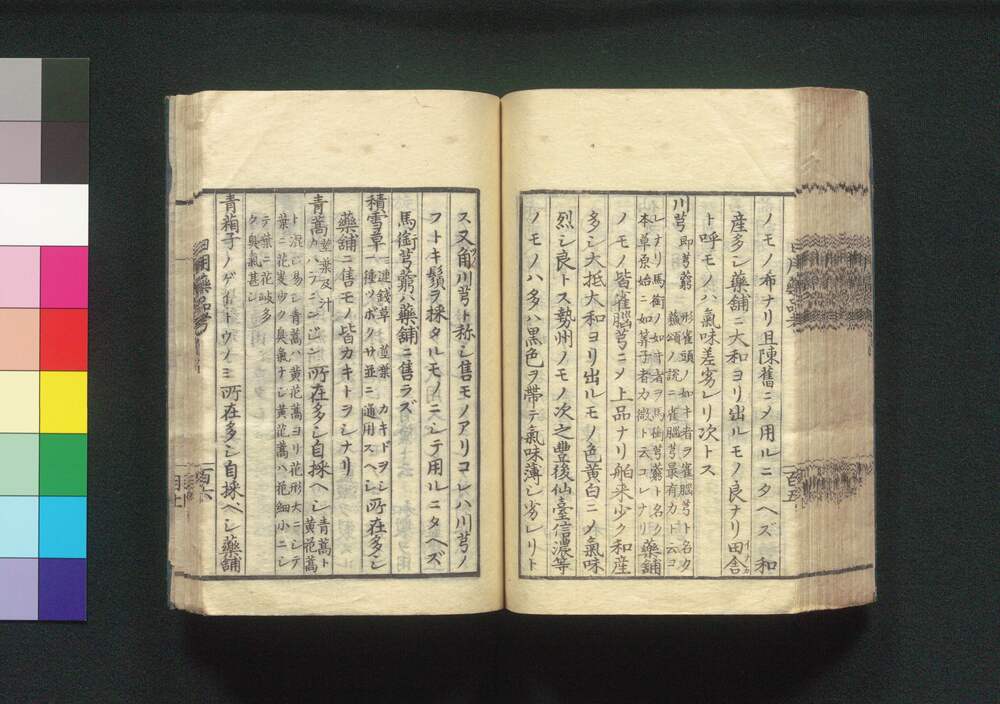 ノモノ布ナリ且陳舊ニメ用ルニタヘズ 和
産多シ藥舗ニ大和ヨリ出ルモノ良ナリ田舎
ト呼モノハ氣味差劣レリ次トス
川芎 即芎藭 形雀頭ノ如キ者ヲ雀腦芎ト名ク
蘓頌ノ説ニ雀腦芎最有力ト云コ
レナリ馬銜ノ如キ者ヲ馬銜芎藭ト名ク
本草原始ニ如算子者力微ト云コレナリ 藥舗
ノモノ皆雀腦芎ニメ上品ナリ舶来少ク和産
多シ大抵大和ヨリ出ルモノ色黄白ニメ氣味
烈シ良トス勢州ノモノ次之豊後仙臺信濃等
ノモノハ多ハ黒色ヲ帯テ氣味薄シ劣レリト
ス又角川芎ト称シ售モノアリコレハ川芎ノ
フトキ鬚ヲ採タルモノニシテ用ルニタヘズ
馬銜芎藭ハ藥舗ニ售ラズ
積雪草 一連錢草 莖葉 カキドヲシ 所在多シ
一種ツボクサ並ニ通用スヘシ
藥舗ニ售モノ皆カキトヲシナリ
青蒿 莖葉及汁
カハラニンジン 所在多シ自採ヘシ 青蒿ト
黄花蒿
ト混シ易シ青蒿ハ黄花蒿ヨリ花形大ニシテ
葉ニ花岐少ク臭氣ナシ黄花蒿ハ花細小ニシ
テ葉ニ花岐多
ク臭氣甚シ
青葙子 ノゲイトウノミ 所在多シ自採ベシ藥舗